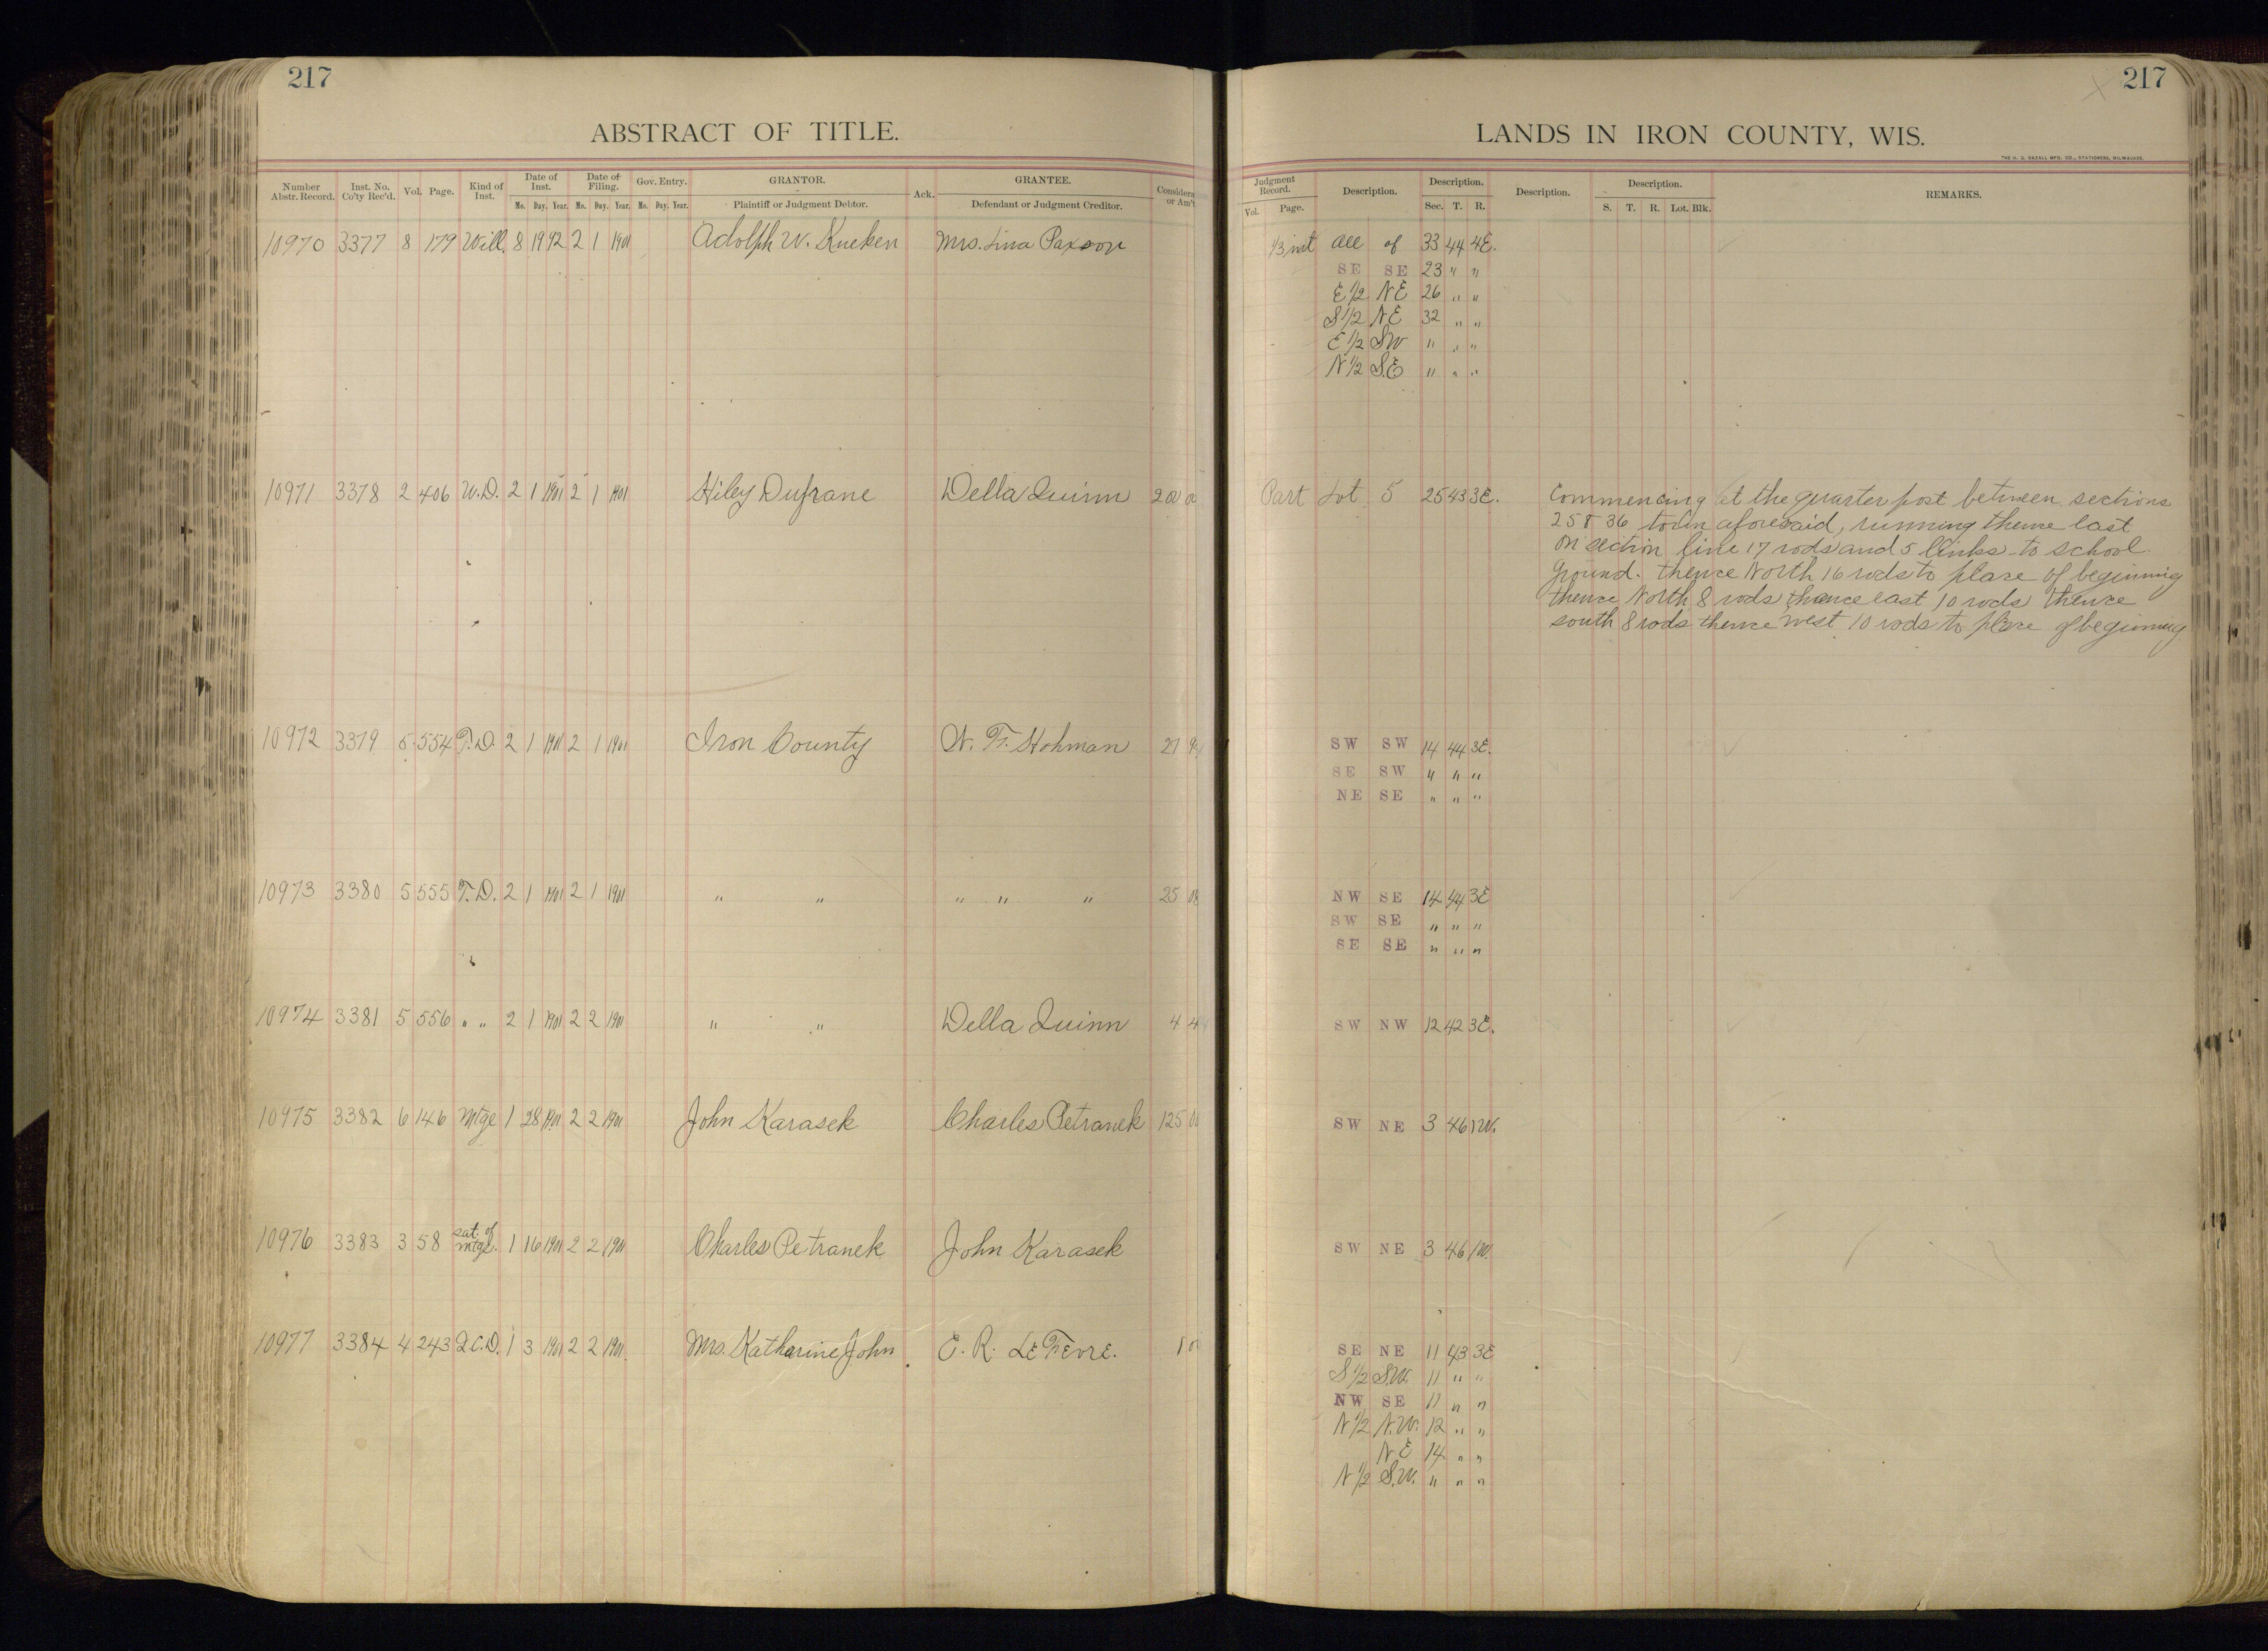 217
ABSTRACT OF TITLE.
Number Abstr. Record. Inst. No. Co'ty Rec'd. Vol. Page. Kind of Inst. Date of Inst. Mo. Day. Year. Date of Filing. Mo. Day. Year. Gov. Entry. Mo. Day. Year. GRANTOR. Plaintiff or Judgment Debtor. Ack. GRANTEE. Defendant or Judgment Creditor. Considera or Am't
10970 3377 8 179 Will 8 19 92 2 1 1901 Adolph W. Kueken Mrs. Lina Paxson
10971 3378 2 406 W.D. 2 1 1901 2 1 1901 Hiley Dufrane Della Quinn 200 0
10972 3379 5 554 T.D. 2 1 1901 2 1 1901 Iron County W. F. Hohman 27
10973 3380 5 555 T.D. 2 1 1901 2 1 1901 " " " " " 25 08
10974 3381 5 556 " " 2 1 1901 2 2 1901 " " Della Quinn 4 4
10975 3382 6 146 Mtge 1 28 1901 2 2 1901 John Karasek Charles Petranek 125 00
10976 3383 3 58 sat. of mtge. 1 16 1901 2 2 1901 Charles Petranek John Karasek
10977 3384 4 243 Q.C.D. 1 3 1901 2 2 1901 Mrs. Katharine John E. R. LeFevre. 1 0
217
LANDS IN IRON COUNTY, WIS.
THE H. G. RAZALL MFG. CO., STATIONERS, MILWAUKEE.
Judgment Record. Vol. Page. Description. Description. Sec. T. R. Description. Description. S. T. R. Lot. Blk. REMARKS.
1/3 int all of 33 44 4E.
SE SE 23 " "
E 1/2 NE 26 " "
S 1/2 NE 32 " "
E 1/2 SW " " "
N 1/2 S.E. " " "
Part Lot 5 25 43 3E. Commencing at the quarter post between sections
25 & 36 town aforesaid, running thence east
on section line 17 rods and 5 links to school
ground. thence North 16 rods to place of beginning
thence North 8 rods thence east 10 rods thence
south 8 rods thence west 10 rods to place of beginning
SW SW 14 44 3E.
SE SW " " "
NE SE " " "
NW SE 14 44 3E
SW SE " " "
SE SE " " "
SW NW 12 42 3E.
SW NE 3 46 1W.
SW NE 3 46 1W.
SE NE 11 43 3E
S 1/2 S.W. 11 " "
NW SE 11 " "
N 1/2 N.W. 12 " "
NE 14 " "
N 1/2 S.W. " " "